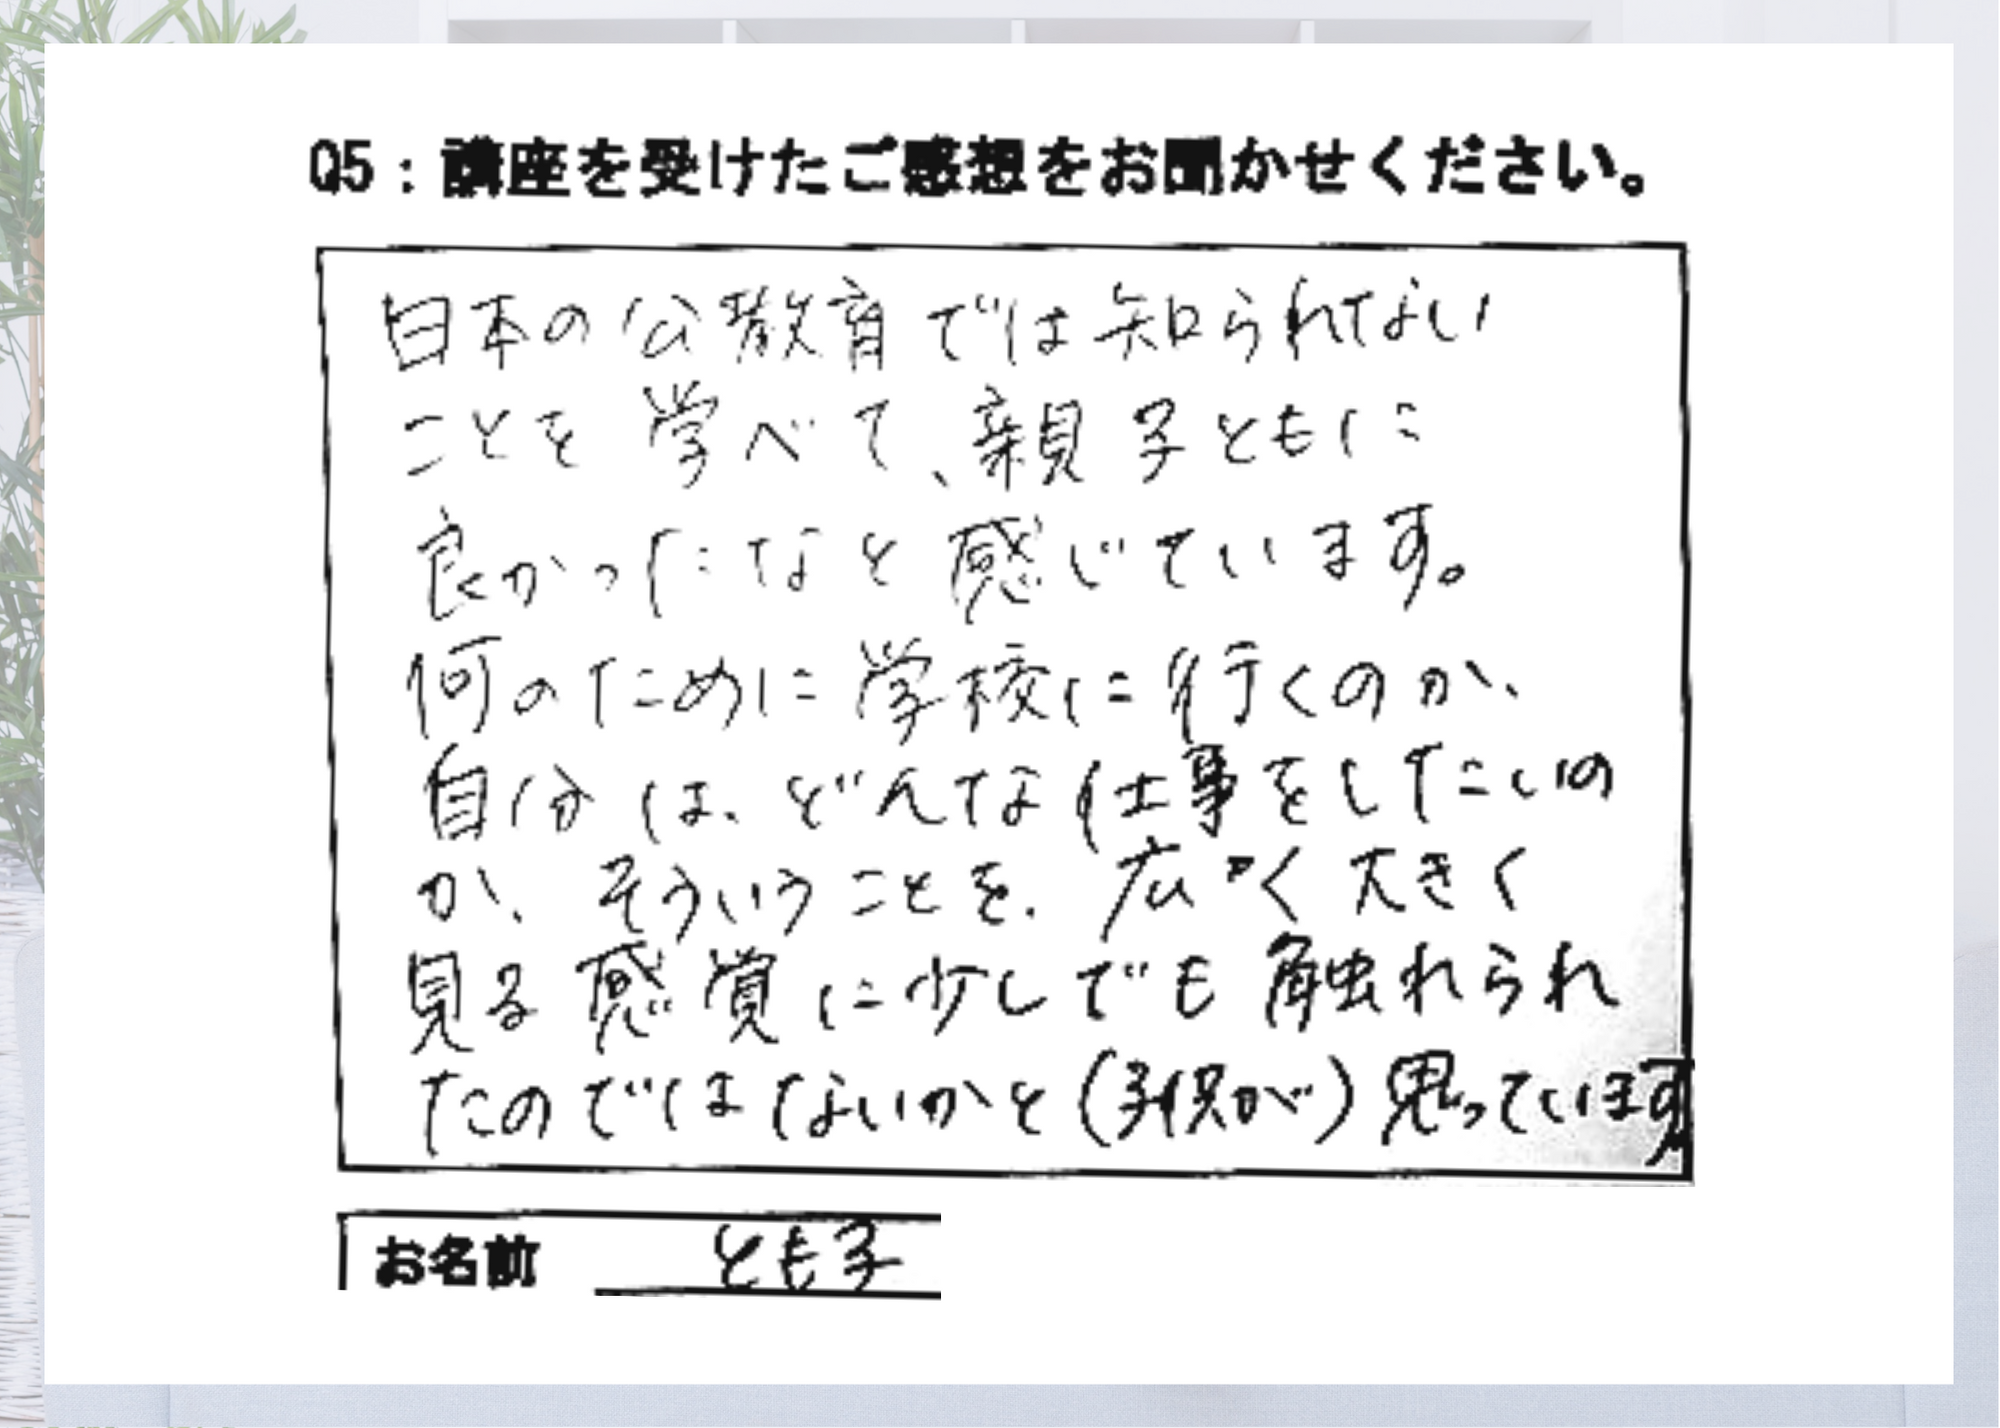 Q5：講座を受けたご感想をお聞かせください。
日本の公教育では知られてない
ことを学べて、親子ともに
良かったなと感じています。
何のために学校に行くのか、
自分は、どんな仕事をしたいの
か、そういうことを、広く大きく
見る感覚に少しでも触れられ
たのではないかと(子供が)思っています
お名前 とも子